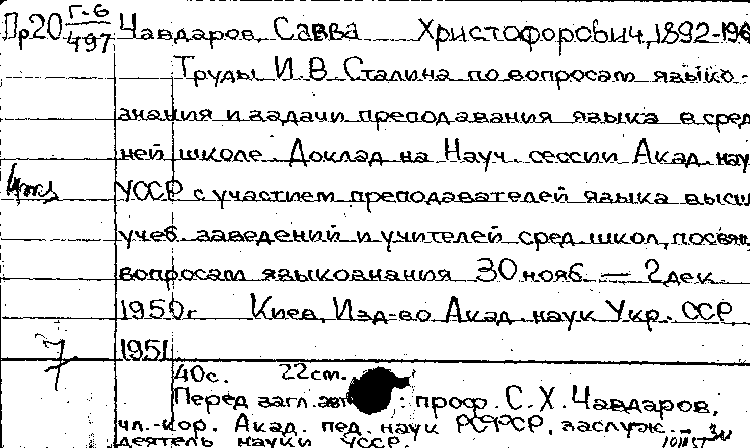 Пр20 Г-6/497 Чавдаров, Савва Христофорович, 1892-196
Труды И.В. Сталина по вопросам языко-
знания и задачи преподавания языка в сред
ней школе. Доклад на Науч. сессии Акад. наук
УССР с участием преподавателей языка высш
учеб. заведений и учителей сред. школ, посвящ
вопросам языкознания 30 нояб. — 2 дек.
1950г. Киев, Изд-во Акад. наук Укр. ССР
7 1951
40с. 22см.
Перед загл. авт.: проф. С.Х. Чавдаров,
чл.-кор. Акад. пед. наук РСФСР, заслуж.
деятель науки УССР.